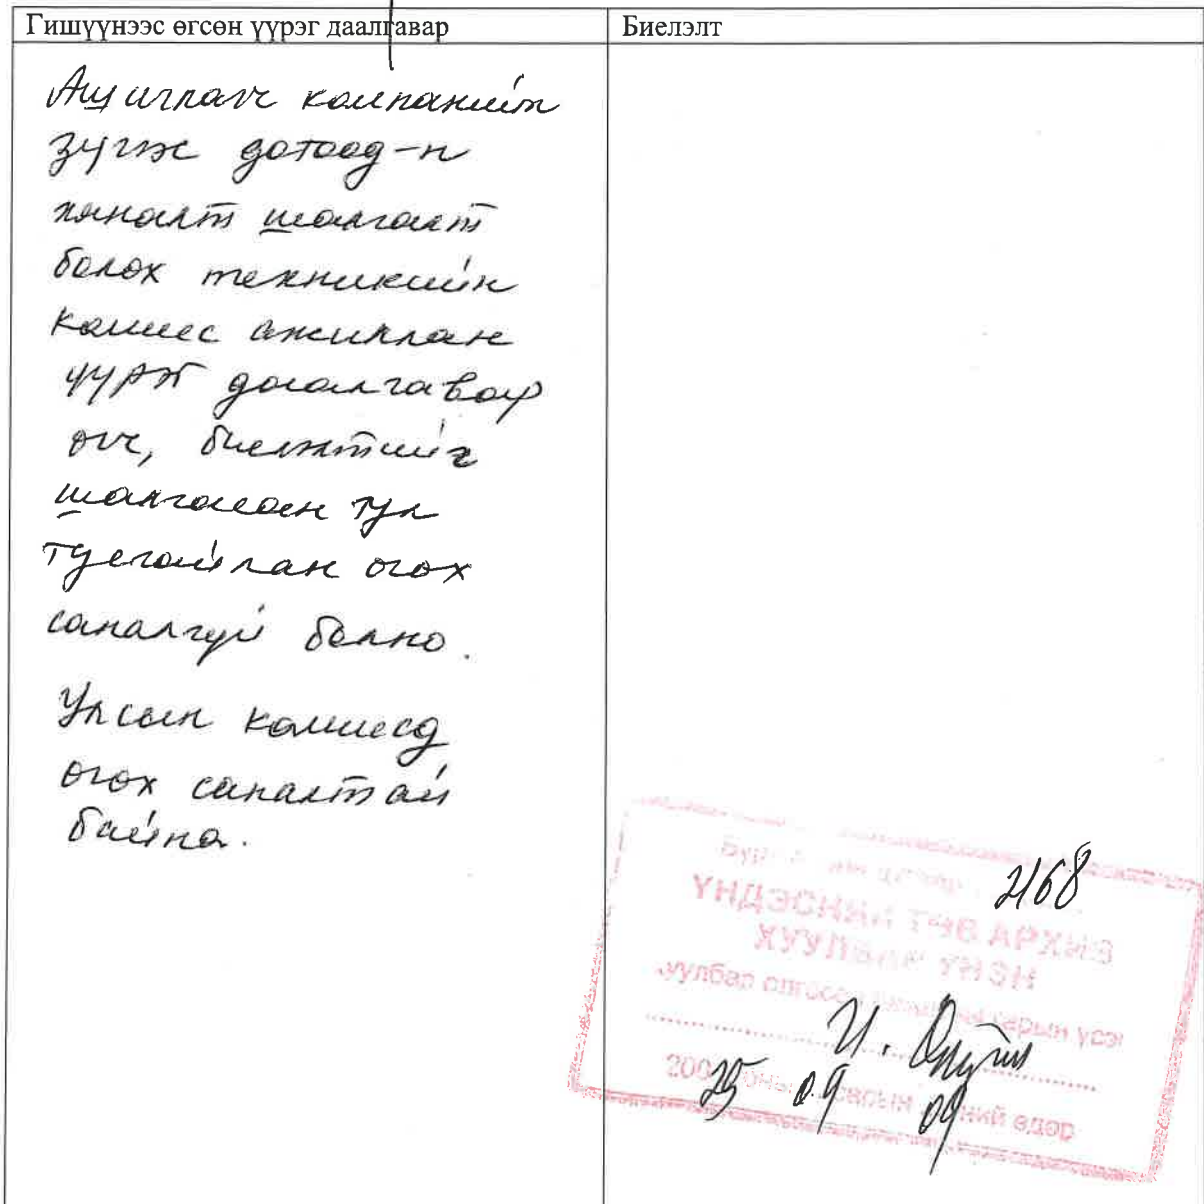 Гишүүнээс өгсөн үүрэг даалгавар
Биелэлт
Ашиглагч компанийн
зүгээс дотоод-н
хяналт шалгалт
болох техникийн
комисс ажиллан
үүрэг даалгавар
өгч, биелэлтийг
шалгасан тул
тусгайлан өгөх
саналгүй болно.
Улсын комиссд
өгөх саналтай
байна.
2168
ҮНДЭСНИЙ ТӨВ АРХИВ
ХУУЛБАР ҮНЭН
хуулбар олгосон гарын үсэг
200 оны сарын ний өдөр
25 09 09